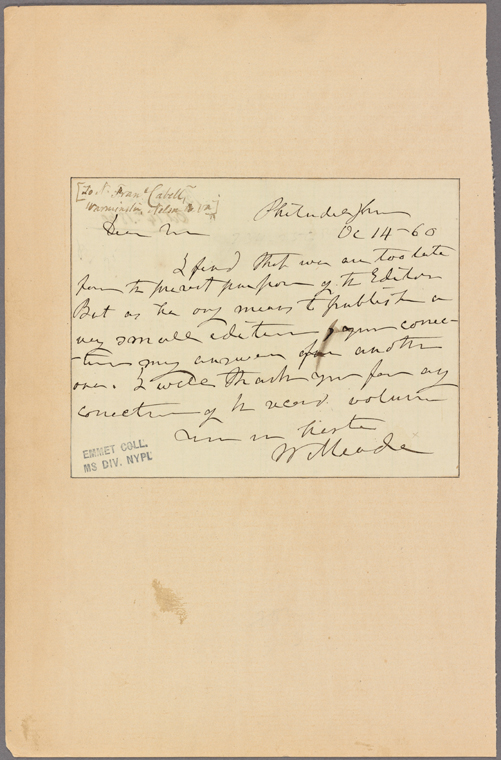 [To N. Fran^s Cabell,
Warminster, Nelson Co. Va]
Philadelphia
Oc 14 - 60
Dear Sir
I find that we are too late
for the present purpose of the Editor
But as he only means to publish a
very small edition your correc-
tions may answer for another
one. I will thank you for any
correction of the second volume
Yours in haste
W Meade
EMMET COLL.
MS DIV. NYPL